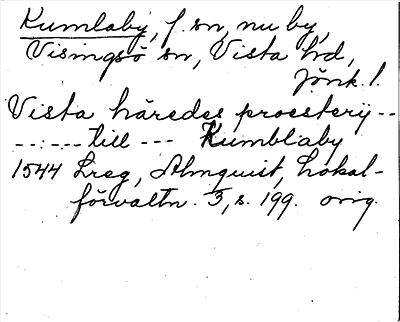 Kumlaby, f. sn, nu by,
Visingsö sn, Vista hd,
Jönk. l.
Vista häredes proesterij --
--:--- till --- Kumblaby
1544 Lreg, Almquist, Lokal-
förvaltn. 3, s. 199. orig.